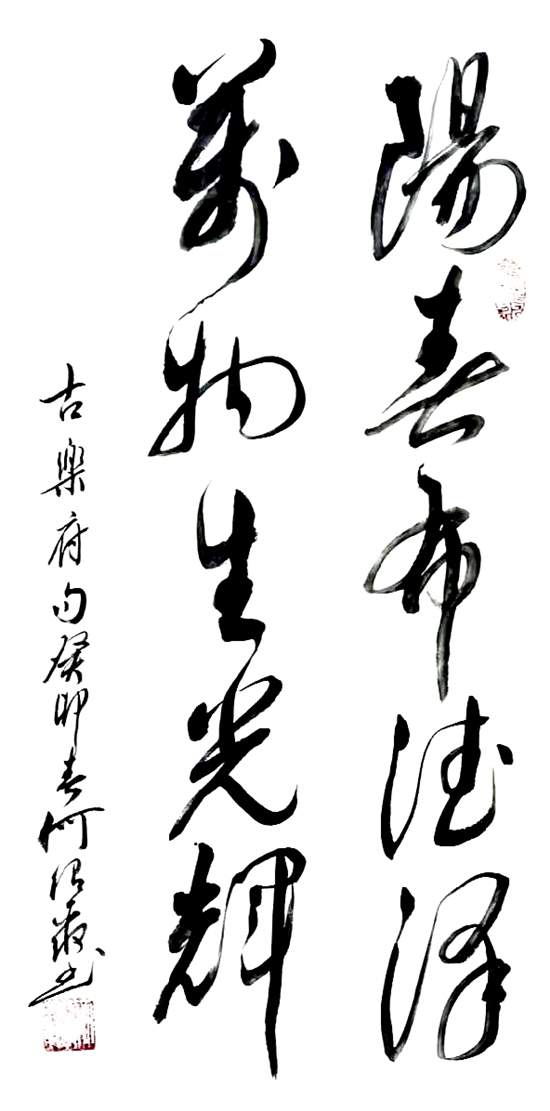 陽春布德澤
萬物生光輝
古樂府句癸卯春何